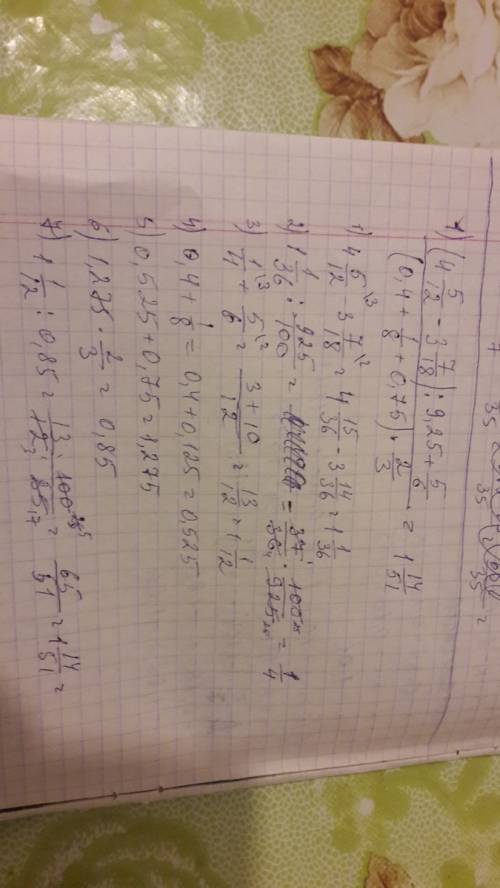 1) (4 5/12 - 3 7/18) : 9,25 + 5/6
(0,4 + 1/8 + 0,75) · 2/3 = 1 14/51
1) 4 5/12 \3 - 3 7/18 \2 = 4 15/36 - 3 14/36 = 1 1/36
2) 1 1/36 : 925/100 = = 37/36 · 100/925 = 1/4
3) 1/4 \3 + 5/6 \2 = 3+10/12 = 13/12 = 1 1/12
4) 0,4 + 1/8 = 0,4 + 0,125 = 0,525
5) 0,525 + 0,75 = 1,275
6) 1,275 · 2/3 = 0,85
7) 1 1/12 : 0,85 = 13 · 100/12 · 85 = 65/51 = 1 14/51 =